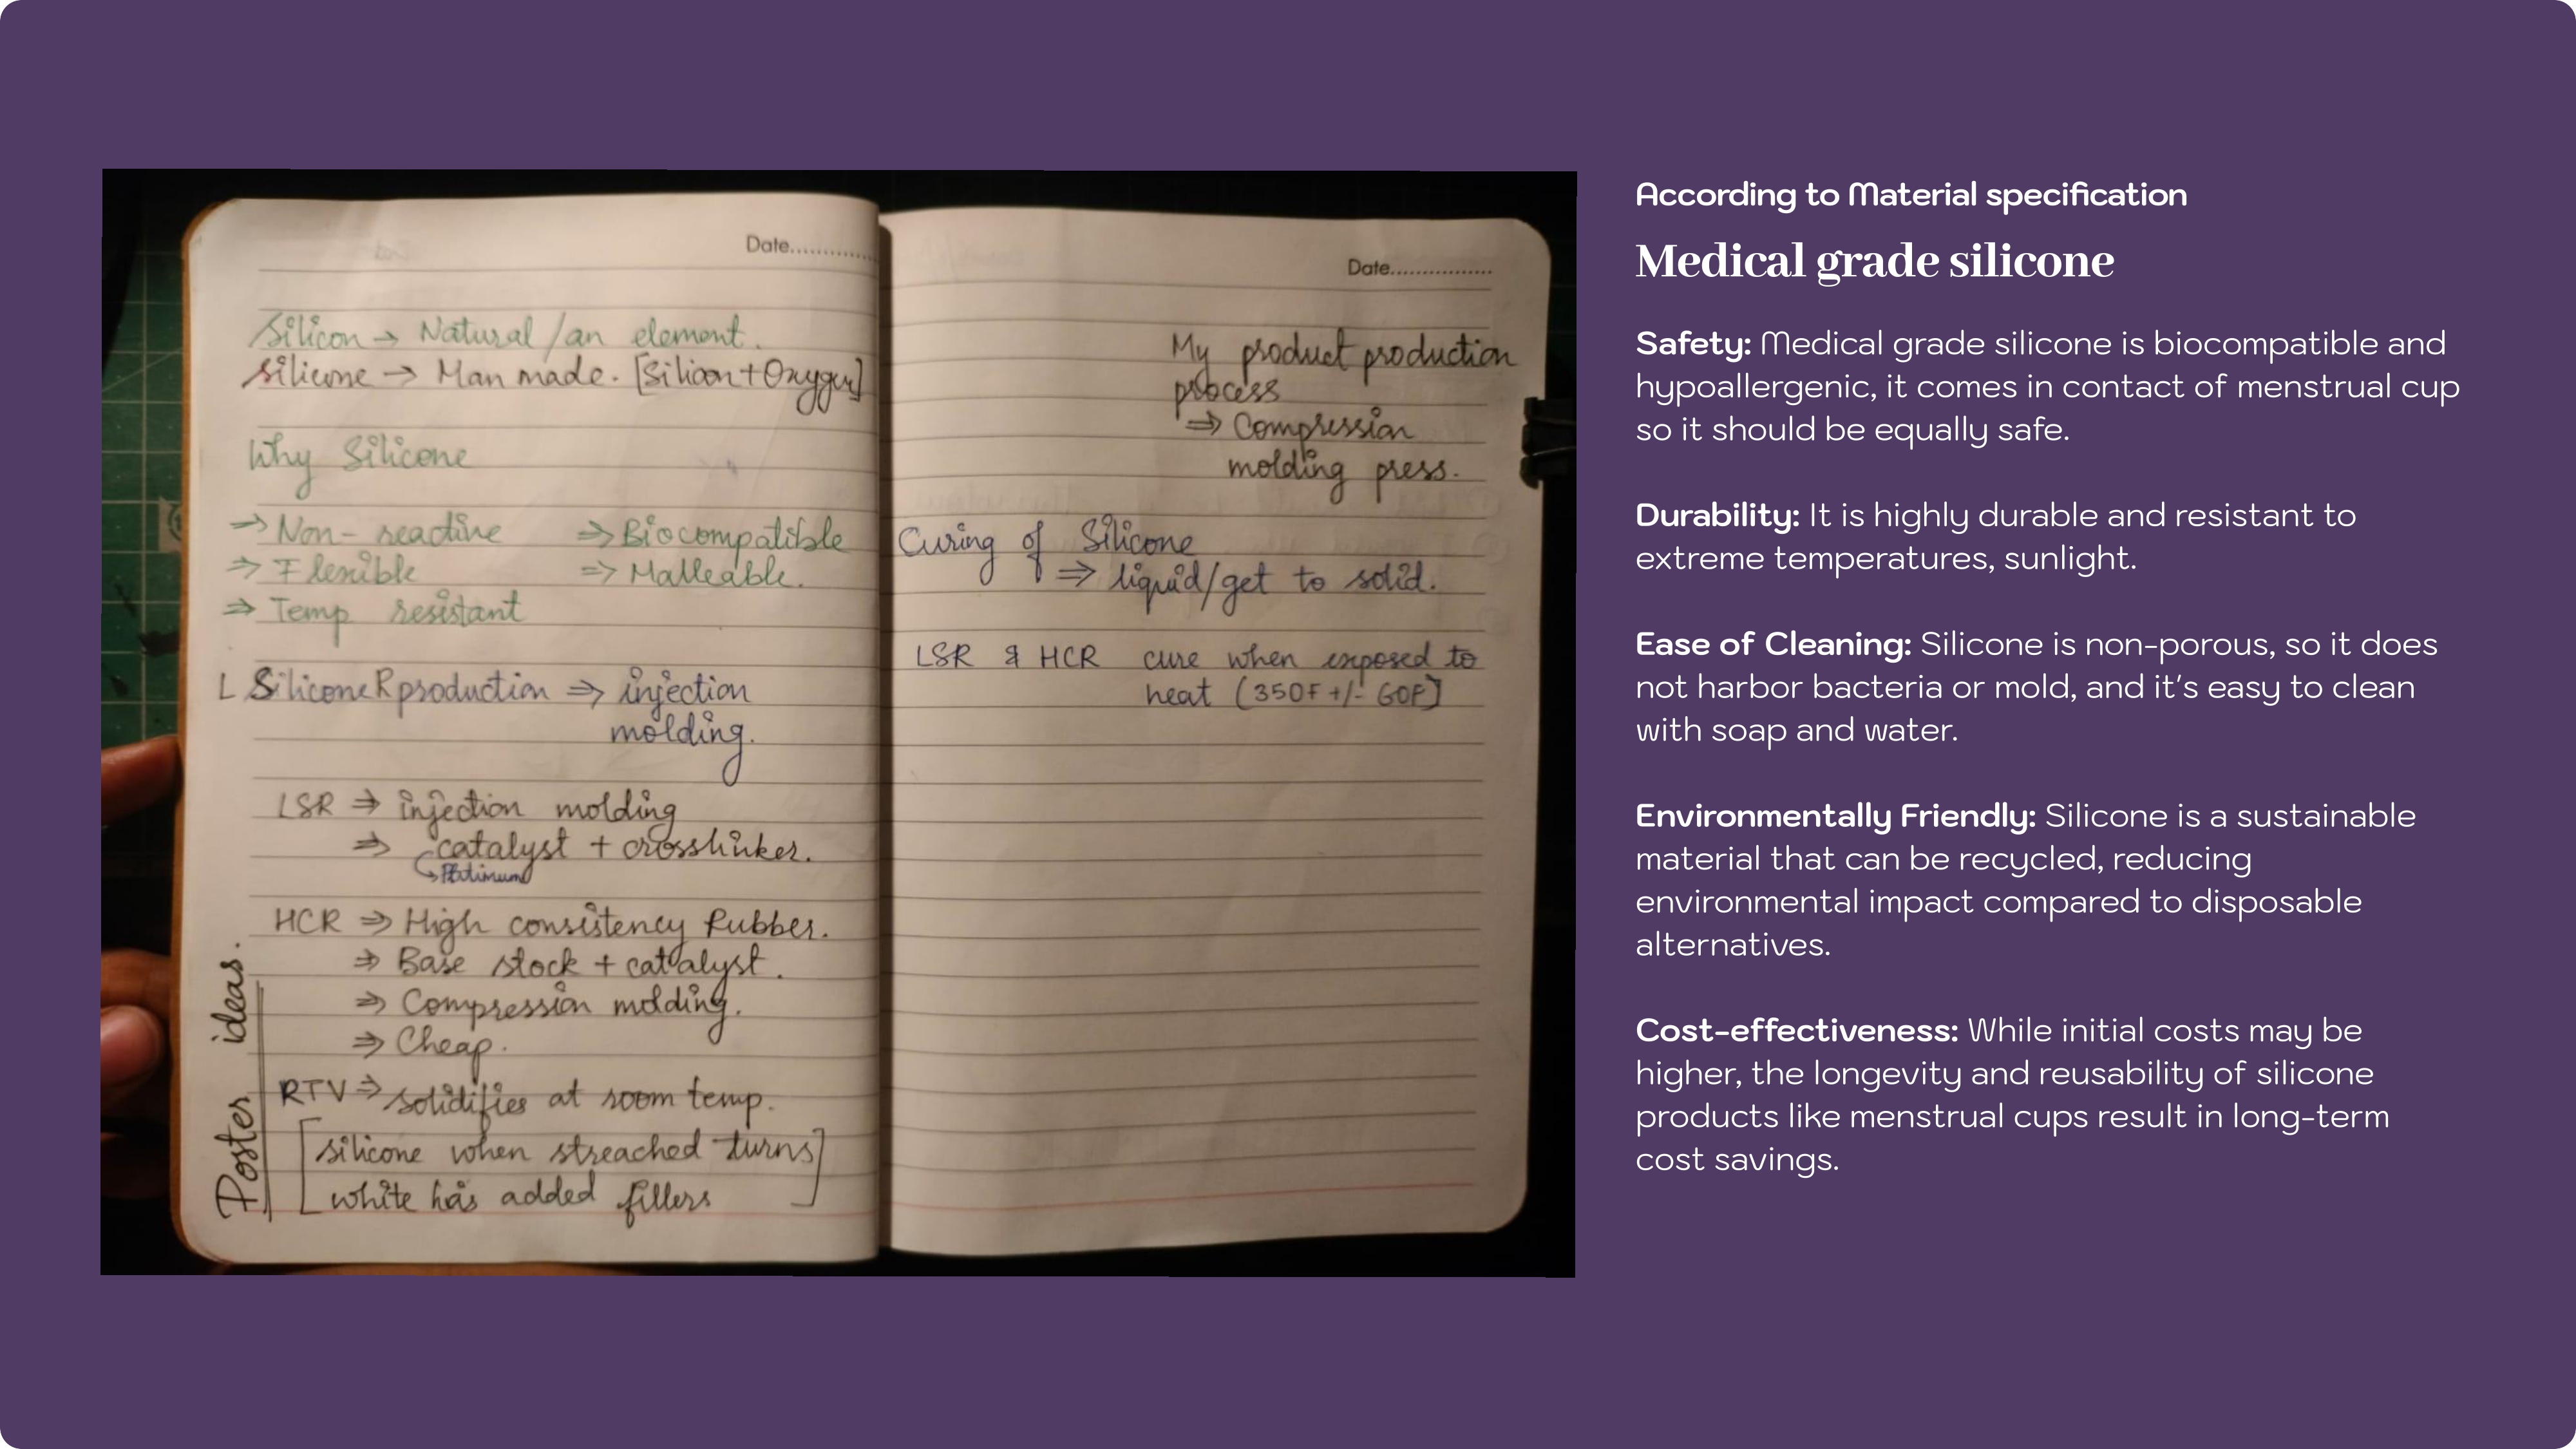 Date................
Silicon → Natural / an element.
Silicone → Man made. [Silicon + Oxygen]
Why Silicone
⇒ Non-reactive ⇒ Biocompatible
⇒ Flexible ⇒ Malleable.
⇒ Temp resistant
L Silicone R production ⇒ injection
molding.
LSR ⇒ injection molding
⇒ catalyst + crosslinker.
↳ Platinum
HCR ⇒ High consistency Rubber.
⇒ Base stock + catalyst.
⇒ Compression molding.
⇒ Cheap.
RTV ⇒ solidifies at room temp.
[silicone when streached turns
white has added fillers]
Poster ideas.
Date................
My product production
process
⇒ Compression
molding press.
Curing of Silicone
⇒ liquid/get to solid.
LSR & HCR cure when exposed to
heat (350F +/- 60F)
According to Material specification
Medical grade silicone
Safety: Medical grade silicone is biocompatible and
hypoallergenic, it comes in contact of menstrual cup
so it should be equally safe.
Durability: It is highly durable and resistant to
extreme temperatures, sunlight.
Ease of Cleaning: Silicone is non-porous, so it does
not harbor bacteria or mold, and it's easy to clean
with soap and water.
Environmentally Friendly: Silicone is a sustainable
material that can be recycled, reducing
environmental impact compared to disposable
alternatives.
Cost-effectiveness: While initial costs may be
higher, the longevity and reusability of silicone
products like menstrual cups result in long-term
cost savings.